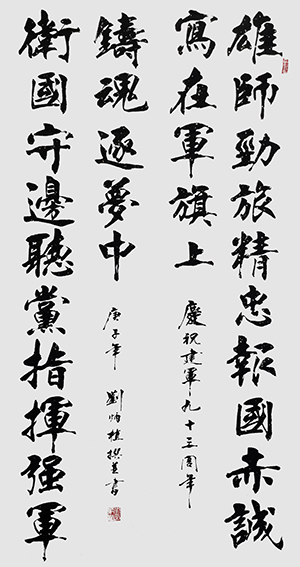 雄師勁旅精忠報國赤誠
寫在軍旗上
慶祝建軍九十三周年
衛國守邊聽黨指揮强軍
鑄魂逐夢中
庚子年 劉炳 撰并書